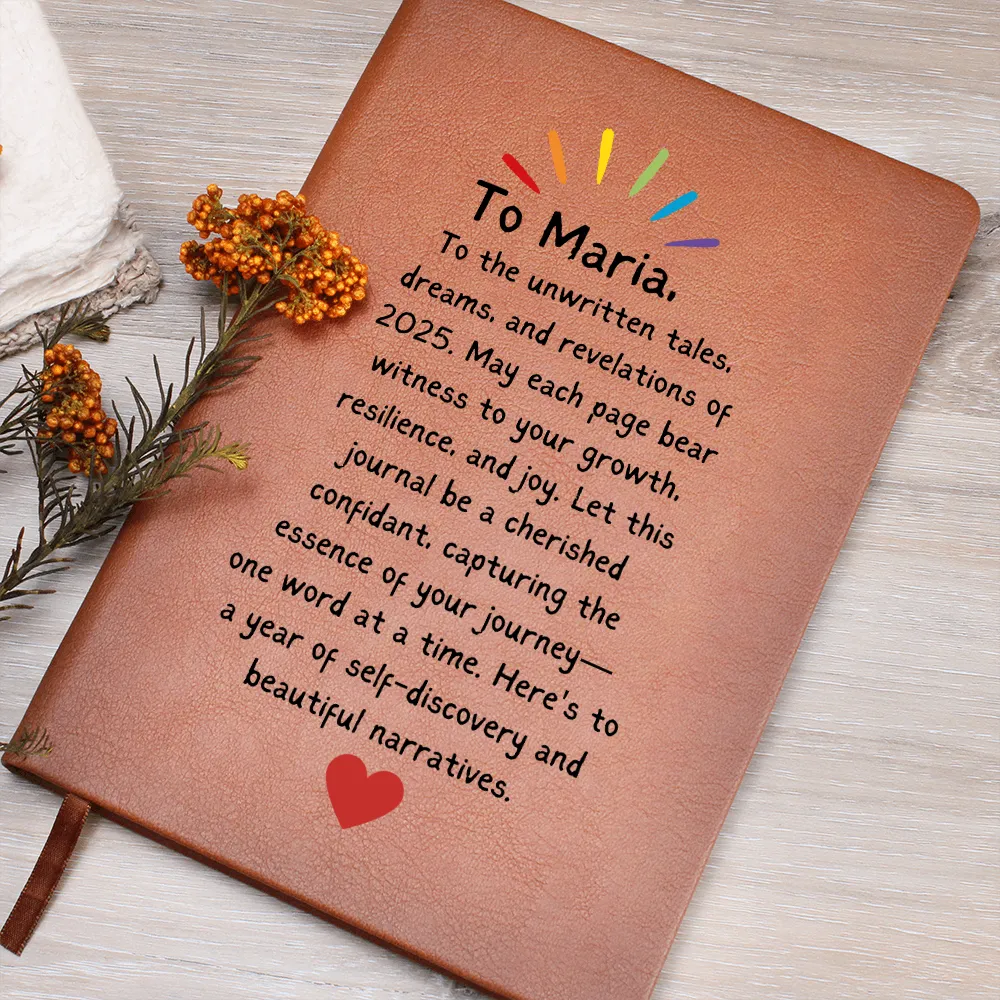 To Maria,
To the unwritten tales,
dreams, and revelations of
2025. May each page bear
witness to your growth,
resilience, and joy. Let this
journal be a cherished
confidant, capturing the
essence of your journey—
one word at a time. Here's to
a year of self-discovery and
beautiful narratives.